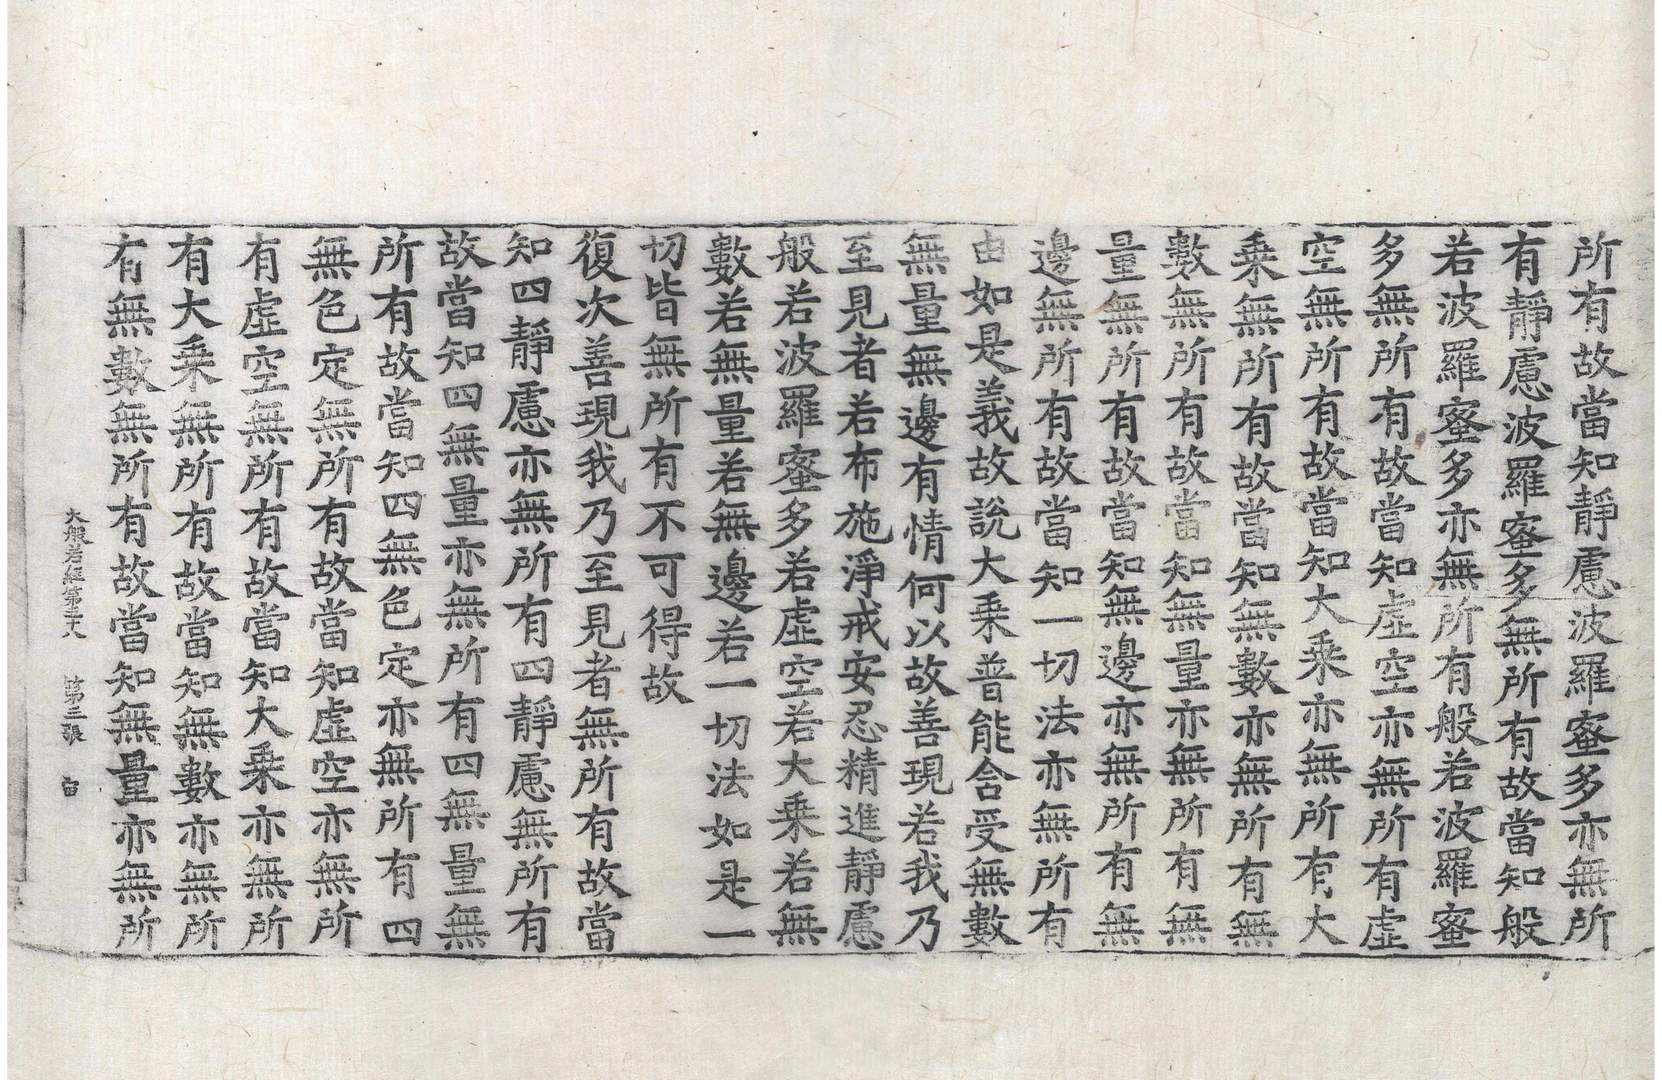 所有故當知靜慮波羅蜜多亦無所
有靜慮波羅蜜多無所有故當知般
若波羅蜜多亦無所有般若波羅蜜
多無所有故當知虛空亦無所有虛
空無所有故當知大乗亦無所有大
乗無所有故當知無數亦無所有無
數無所有故當知無量亦無所有無
量無所有故當知無邊亦無所有無
邊無所有故當知一切法亦無所有
由如是義故說大乗普能含受無數
無量無邊有情何以故善現若我乃
至見者若布施淨戒安忍精進靜慮
般若波羅蜜多若虛空若大乗若無
數若無量若無邊若一切法如是一
切皆無所有不可得故
復次善現我乃至見者無所有故當
知四靜慮亦無所有四靜慮無所有
故當知四無量亦無所有四無量無
所有故當知四無色定亦無所有四
無色定無所有故當知虛空亦無所
有虛空無所有故當知大乗亦無所
有大乗無所有故當知無數亦無所
有無數無所有故當知無量亦無所
大般若經第五十八 第三張 宙